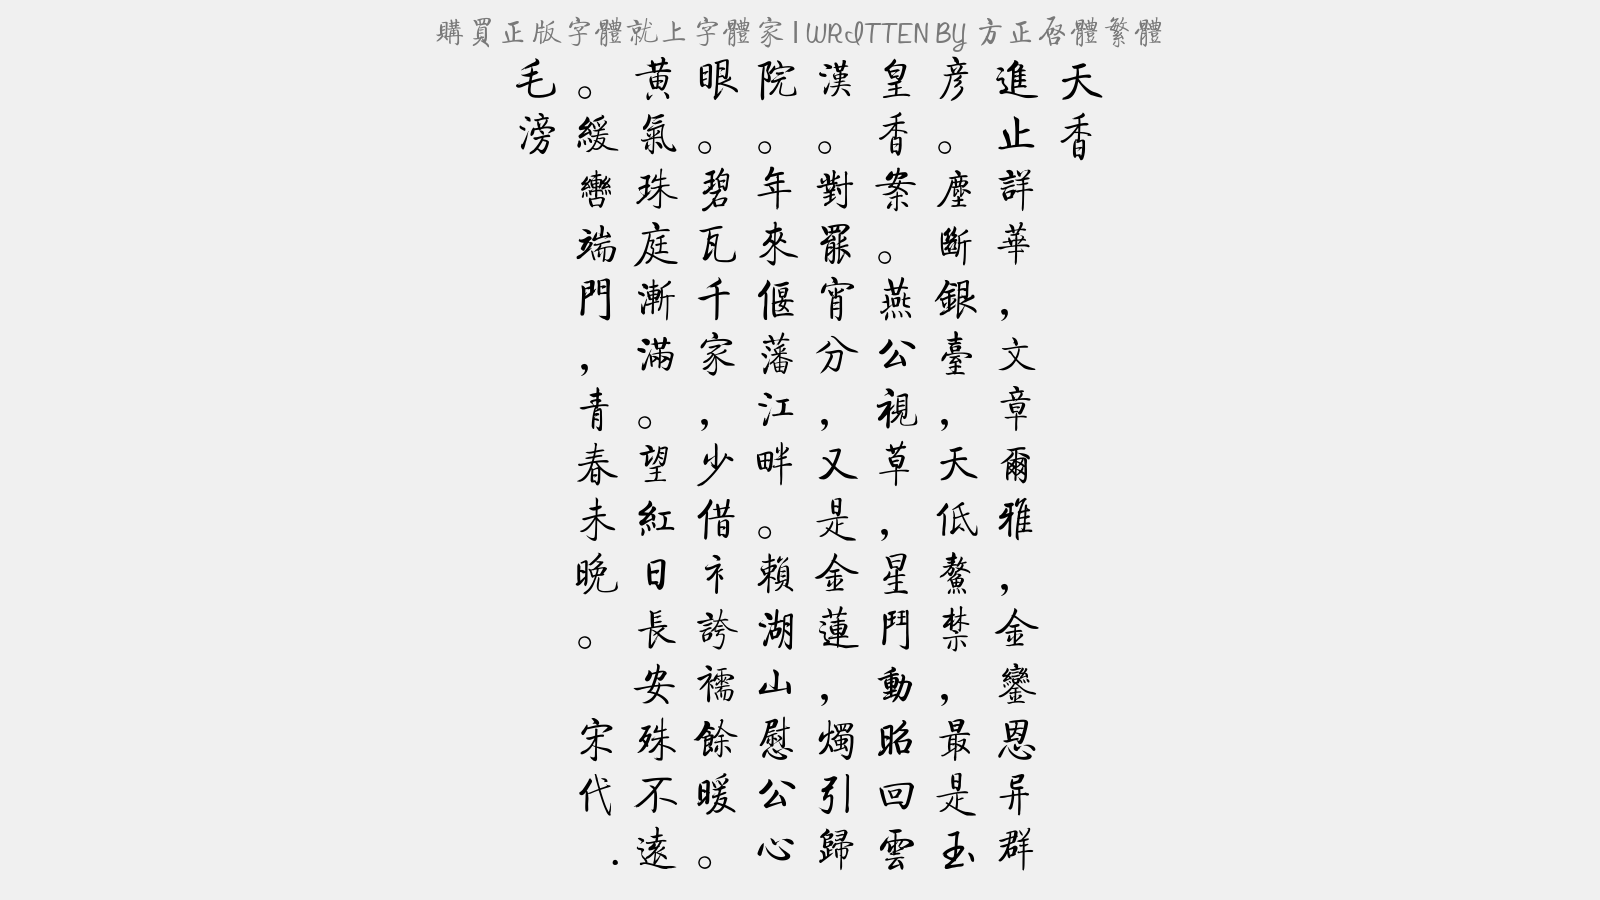 購買正版字體就上字體家 | WRITTEN BY 方正启體繁體
天香
進止詳華，文章爾雅，金鑾恩异群
彦。塵斷銀臺，天低鰲禁，最是玉
皇香案。燕公視草，星鬥動昭回雲
漢。對罷宵分，又是金蓮，燭引歸
院。年來偃藩江畔。賴湖山慰公心
眼。碧瓦千家，少借衤誇襦餘暖。
黃氣珠庭漸滿。望紅日長安殊不遠
。緩轡端門，青春未晚。 宋代.
毛滂